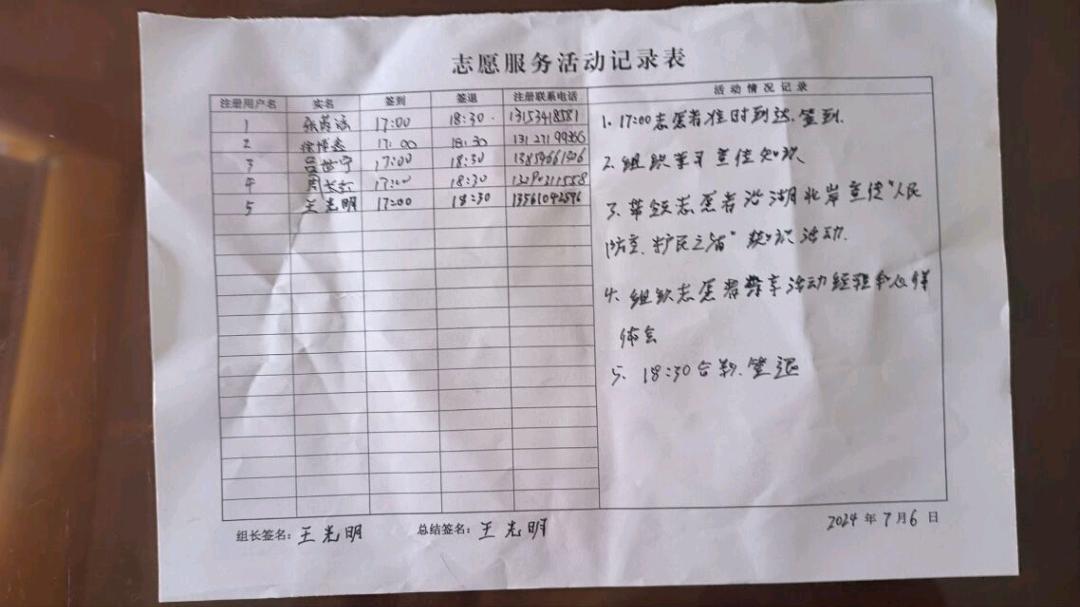 志愿服务活动记录表
注册用户名 实名 签到 签退 注册联系电话 活动情况记录
1 17:00 18:30 13153418581
2 17:00 18:30
3 吕世宁 17:00 18:30
4 17:00 18:30
5 王光明 17:00 18:30
1. 17:00志愿者准时到达.签到.
2. 组织学习宣传知识.
3、带领志愿者沿湖北岸宣传“人民
防空.护民之盾” 活动.
4. 组织志愿者分享活动经验和心得
体会
5、18:30合影.签退
组长签名：王光明 总结签名：王光明 2024年7月6日